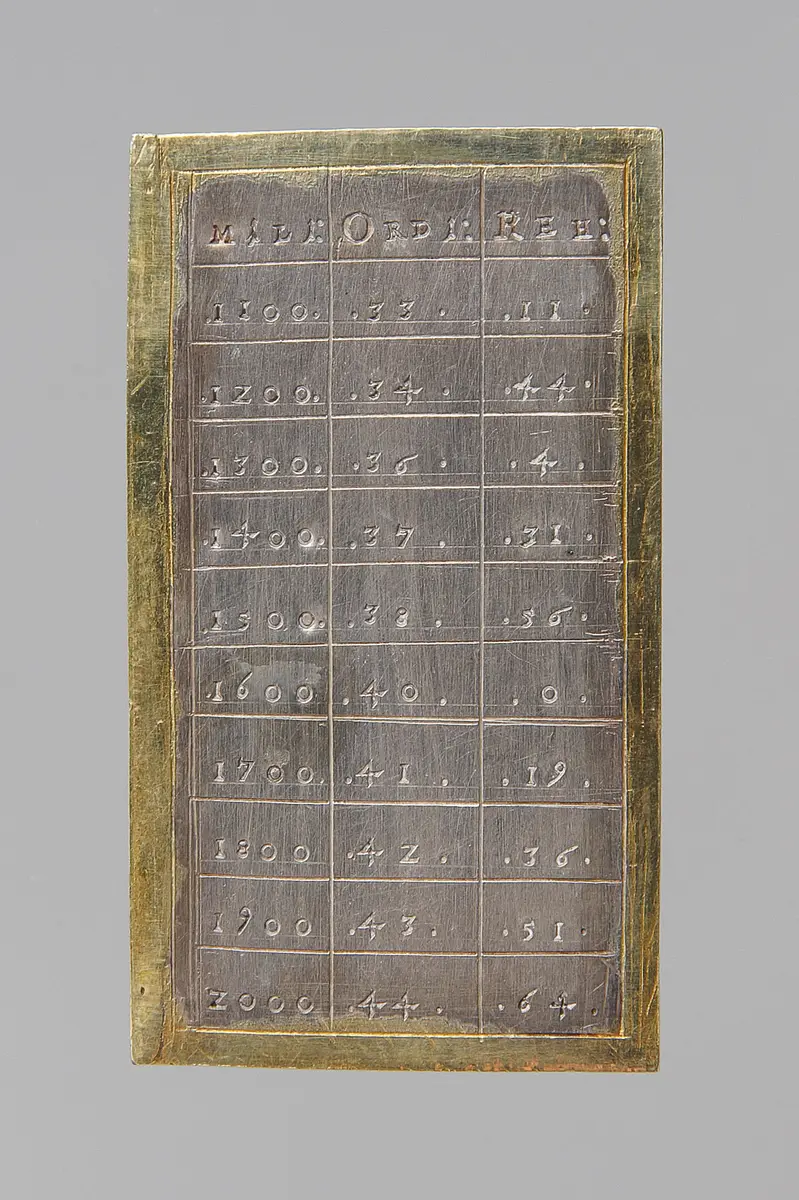 MILI: ORDI: REH:
1100. .33. .11.
.1200. .34. .44.
.1300. .36. .4.
.1400. .37. .31.
.1500. .38. .56.
.1600 .40. .0.
.1700. .41. .19.
1800 .42. .36.
1900 .43. .51.
2000 .44. .64.